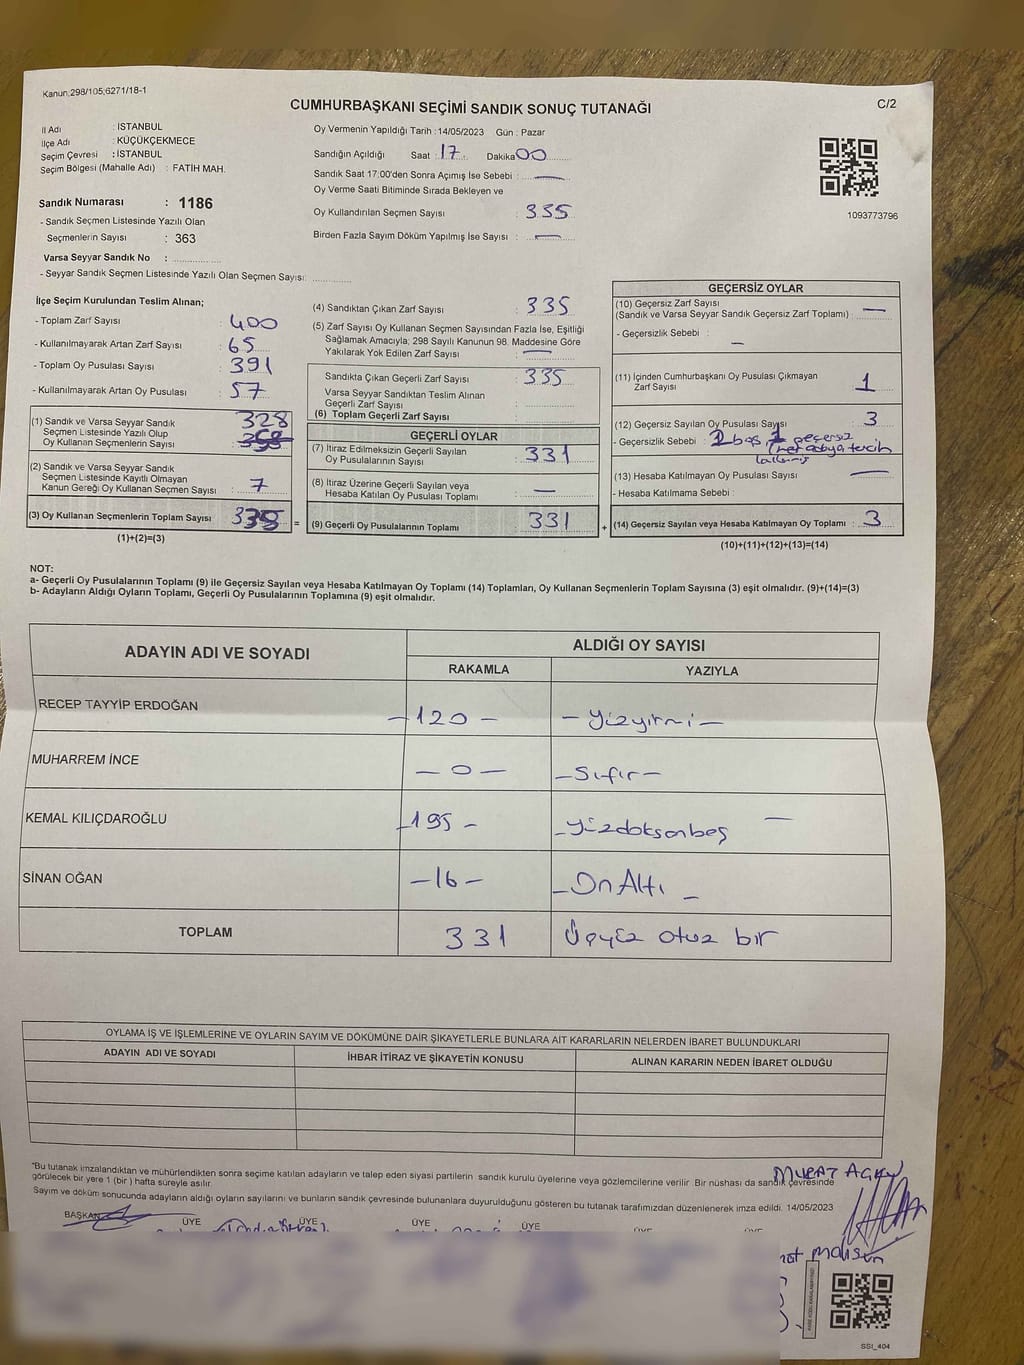 Kanun:298/105;6271/18-1
C/2
CUMHURBAŞKANI SEÇİMİ SANDIK SONUÇ TUTANAĞI
İl Adı : İSTANBUL
İlçe Adı : KÜÇÜKÇEKMECE
Seçim Çevresi : İSTANBUL
Seçim Bölgesi (Mahalle Adı) : FATİH MAH.
Sandık Numarası : 1186
- Sandık Seçmen Listesinde Yazılı Olan
Seçmenlerin Sayısı : 363
Varsa Seyyar Sandık No :
- Seyyar Sandık Seçmen Listesinde Yazılı Olan Seçmen Sayısı:
Oy Vermenin Yapıldığı Tarih : 14/05/2023 Gün : Pazar
Sandığın Açıldığı Saat : 17 Dakika 00
Sandık Saat 17:00'den Sonra Açımış İse Sebebi : —
Oy Verme Saati Bitiminde Sırada Bekleyen ve
Oy Kullandırılan Seçmen Sayısı : 335
Birden Fazla Sayım Döküm Yapılmış İse Sayısı : —
1093773796
İlçe Seçim Kurulundan Teslim Alınan;
- Toplam Zarf Sayısı : 400
- Kullanılmayarak Artan Zarf Sayısı : 65
- Toplam Oy Pusulası Sayısı : 391
- Kullanılmayarak Artan Oy Pusulası : 57
(1) Sandık ve Varsa Seyyar Sandık 328
Seçmen Listesinde Yazılı Olup
Oy Kullanan Seçmenlerin Sayısı
(2) Sandık ve Varsa Seyyar Sandık
Seçmen Listesinde Kayıtlı Olmayan
Kanun Gereği Oy Kullanan Seçmen Sayısı : 7
(3) Oy Kullanan Seçmenlerin Toplam Sayısı =
(1)+(2)=(3)
(4) Sandıktan Çıkan Zarf Sayısı : 335
(5) Zarf Sayısı Oy Kullanan Seçmen Sayısından Fazla İse, Eşitliği
Sağlamak Amacıyla; 298 Sayılı Kanunun 98. Maddesine Göre
Yakılarak Yok Edilen Zarf Sayısı : —
Sandıkta Çıkan Geçerli Zarf Sayısı : 335
Varsa Seyyar Sandıktan Teslim Alınan
Geçerli Zarf Sayısı :
(6) Toplam Geçerli Zarf Sayısı
GEÇERLİ OYLAR
(7) İtiraz Edilmeksizin Geçerli Sayılan
Oy Pusulalarının Sayısı : 331
(8) İtiraz Üzerine Geçerli Sayılan veya
Hesaba Katılan Oy Pusulası Toplamı : —
(9) Geçerli Oy Pusulalarının Toplamı : 331 +
GEÇERSİZ OYLAR
(10) Geçersiz Zarf Sayısı
(Sandık ve Varsa Seyyar Sandık Geçersiz Zarf Toplamı) : —
- Geçersizlik Sebebi : —
(11) İçinden Cumhurbaşkanı Oy Pusulası Çıkmayan
Zarf Sayısı : 1
(12) Geçersiz Sayılan Oy Pusulası Sayısı : 3
- Geçersizlik Sebebi : boş, 1 geçersiz
tercih
(13) Hesaba Katılmayan Oy Pusulası Sayısı : —
- Hesaba Katılmama Sebebi :
(14) Geçersiz Sayılan veya Hesaba Katılmayan Oy Toplamı : 3
(10)+(11)+(12)+(13)=(14)
NOT:
a- Geçerli Oy Pusulalarının Toplamı (9) ile Geçersiz Sayılan veya Hesaba Katılmayan Oy Toplamı (14) Toplamları, Oy Kullanan Seçmenlerin Toplam Sayısına (3) eşit olmalıdır. (9)+(14)=(3)
b- Adayların Aldığı Oyların Toplamı, Geçerli Oy Pusulalarının Toplamına (9) eşit olmalıdır.
ADAYIN ADI VE SOYADI ALDIĞI OY SAYISI
RAKAMLA YAZIYLA
RECEP TAYYİP ERDOĞAN - 120 - - Yüzyirmi -
MUHARREM İNCE - 0 - - Sıfır -
KEMAL KILIÇDAROĞLU - 195 - - Yüzdoksanbeş -
SİNAN OĞAN - 16 - - On Altı -
TOPLAM 331 Üçyüz otuz bir
OYLAMA İŞ VE İŞLEMLERİNE VE OYLARIN SAYIM VE DÖKÜMÜNE DAİR ŞİKAYETLERLE BUNLARA AİT KARARLARIN NELERDEN İBARET BULUNDUKLARI
ADAYIN ADI VE SOYADI İHBAR İTİRAZ VE ŞİKAYETİN KONUSU ALINAN KARARIN NEDEN İBARET OLDUĞU
"Bu tutanak imzalandıktan ve mühürlendikten sonra seçime katılan adayların ve talep eden siyasi partilerin sandık kurulu üyelerine veya gözlemcilerine verilir Bir nüshası da sandık çevresinde
görülecek bir yere 1 (bir) hafta süreyle asılır.
Sayım ve döküm sonucunda adayların aldığı oyların sayılarını ve bunların sandık çevresinde bulunanlara duyurulduğunu gösteren bu tutanak tarafımızdan düzenlenerek imza edildi. 14/05/2023
MURAT
BAŞKAN ÜYE ÜYE ÜYE ÜYE
SSI_404